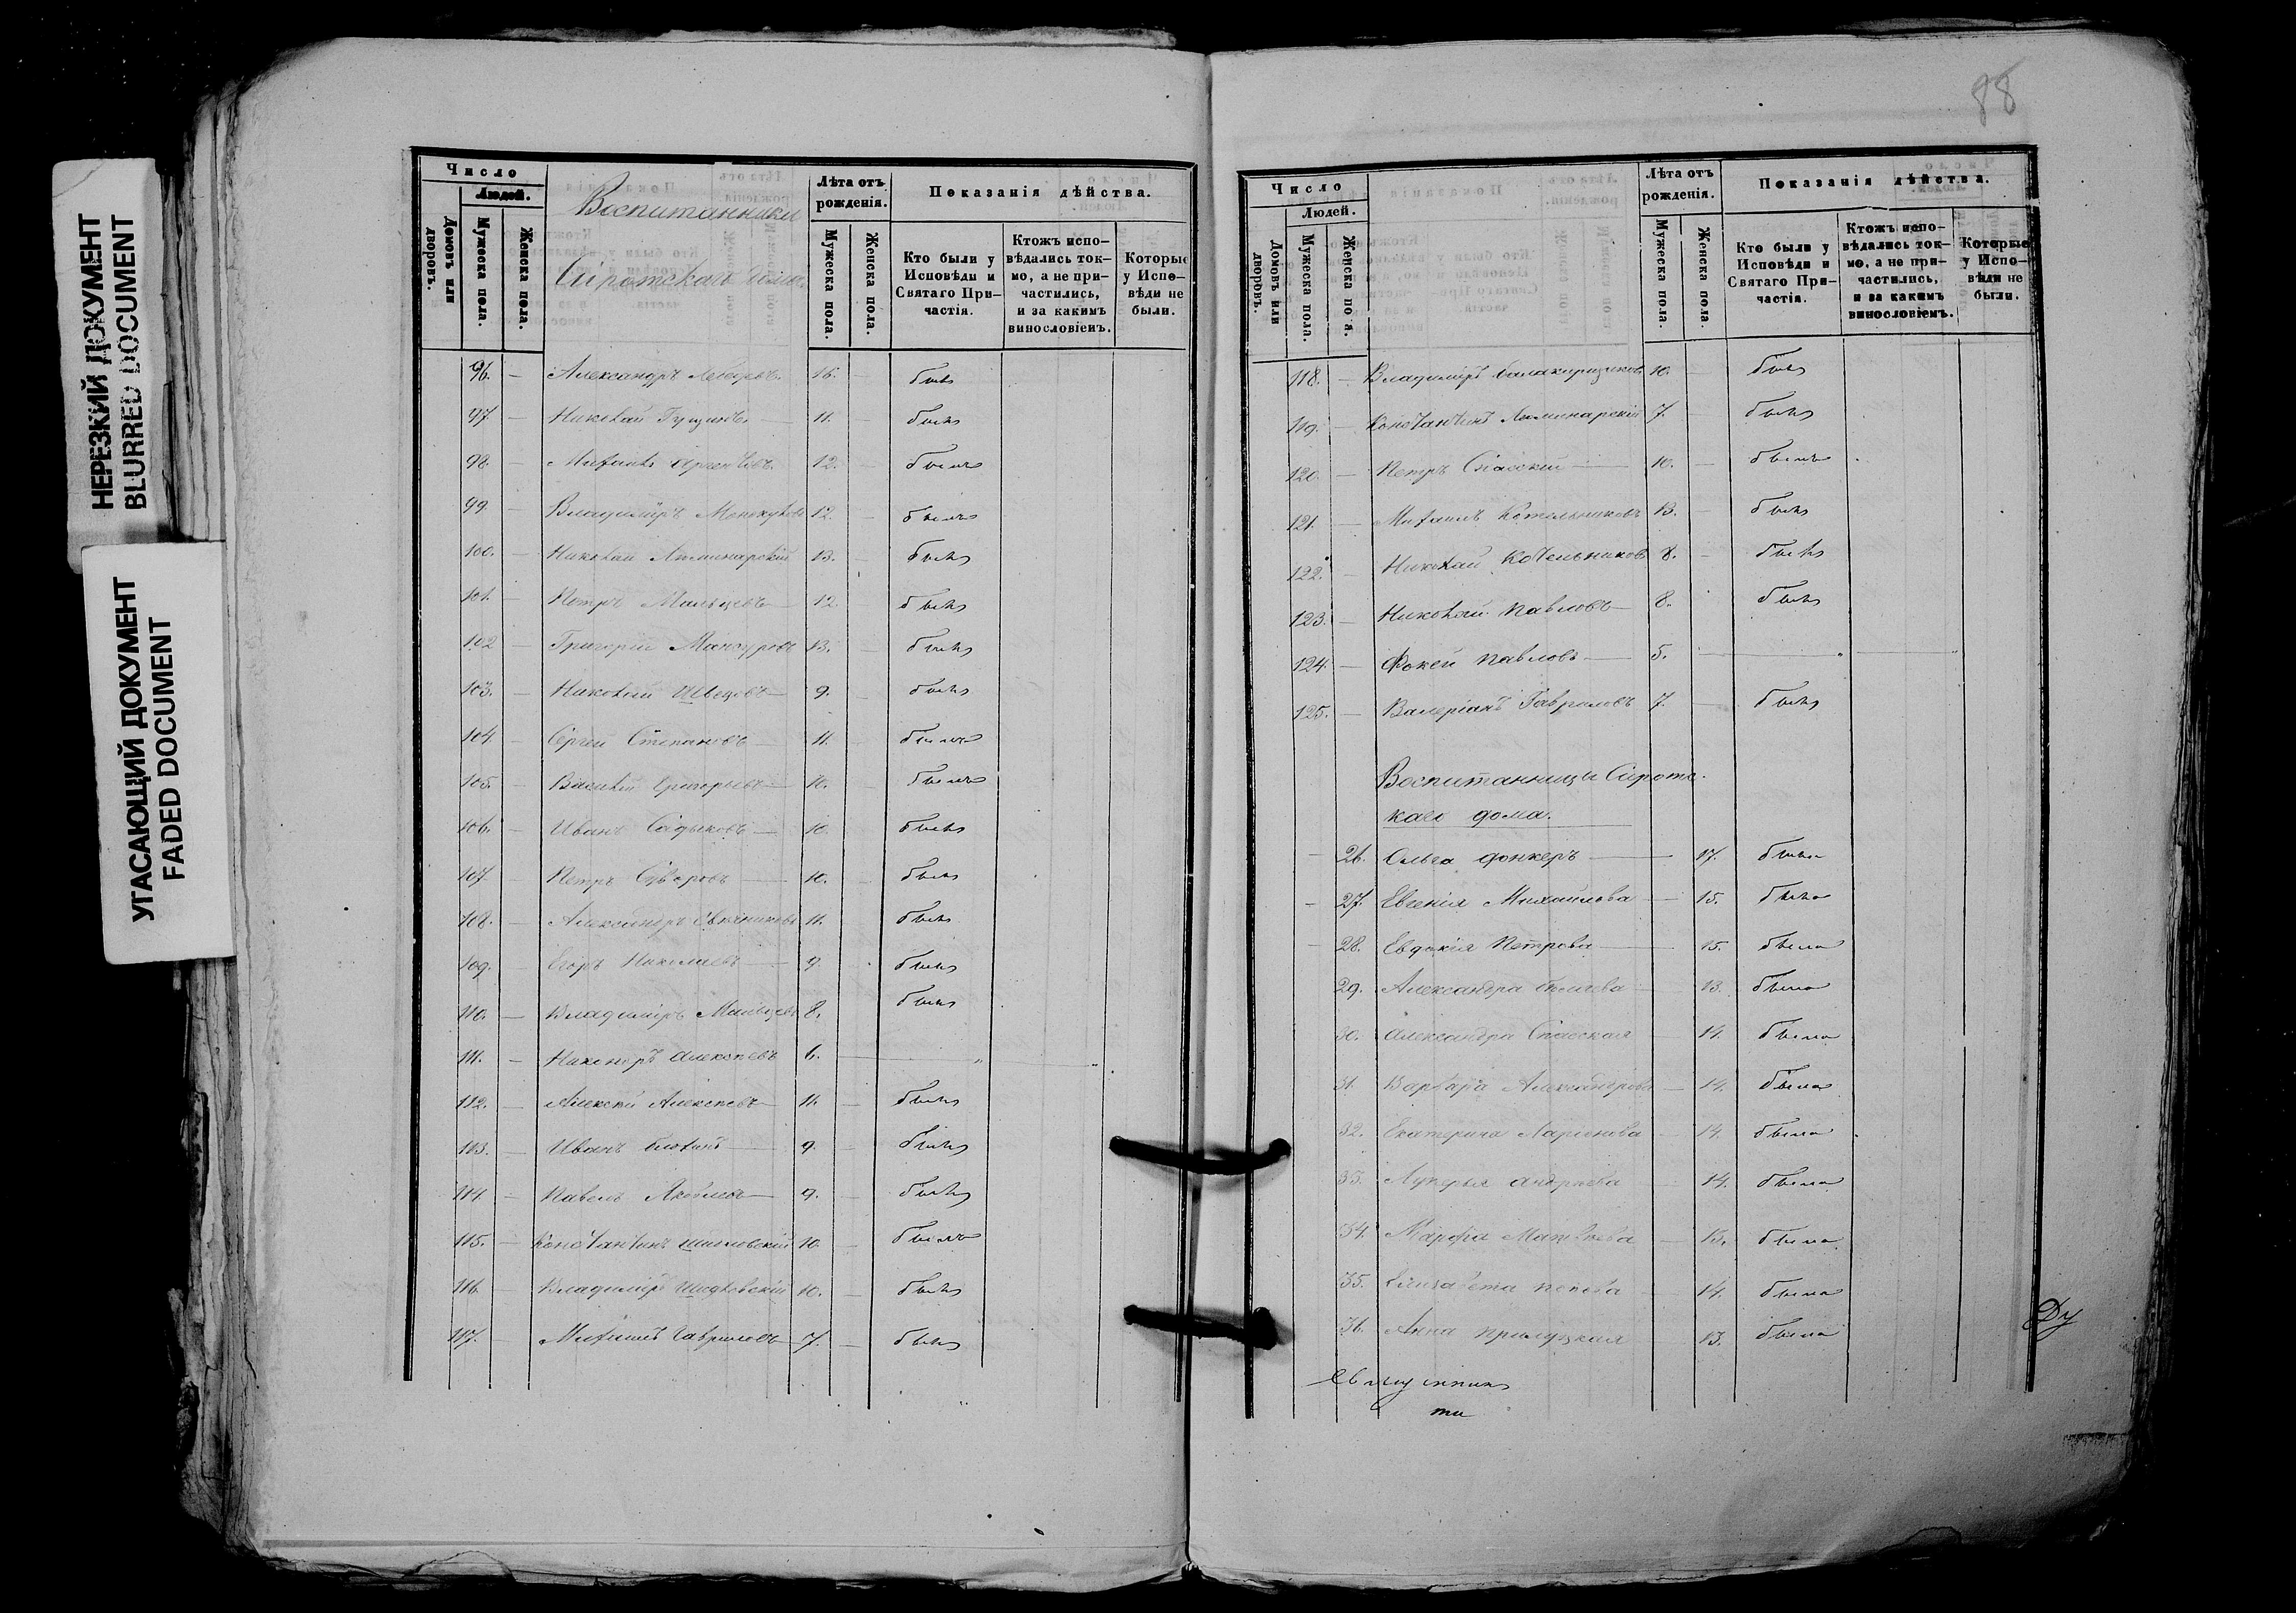 НЕРЕЗКИЙ ДОКУМЕНТ
BLURRED DOCUMENT
УГАСАЮЩИЙ ДОКУМЕНТ
FADED DOCUMENT
Число
Людей.
Домовъ или дворовъ.
Мужеска пола.
Женска пола.
Воспитанники
Сиротскаго дома.
Лѣта отъ рожденія.
Мужеска пола.
Женска пола.
Показанія дѣйства.
Кто были у Исповѣди и Святаго При-
частія.
Ктожъ испо-
вѣдались ток-
мо, а не при-
частились,
и за какимъ
винословіемъ.
Которые у Испо-
вѣди не были.
96. — Александръ 16. — былъ
97 — Николай Гущинъ — 11. — былъ
98. — Михаилъ 12. — былъ
99 — Владиміръ 12. былъ
100. — Николай Люминарскій 13. — былъ
101. — Петръ Мальцевъ — 12. былъ
102 — Григорій Мансуровъ 13. — былъ
103. — Николай Швецовъ — 9. — былъ
104. — Сергей Степановъ — 11. — былъ
105. — Василій Григорьевъ — 10. — былъ
106. — Иванъ Садыковъ — 10. былъ
107 — Петръ Суворовъ — 10. — былъ
108. — Александръ 11. — былъ
109. — Егоръ Николаевъ — 9. былъ
110. — Владиміръ Мальцевъ 8. былъ
111. — Никаноръ Алексѣевъ 6. —
112. — Алексѣй Алексѣевъ — 11. — былъ
113. — Иванъ — 9. — былъ
114 — Павелъ Яковлевъ — 9. — былъ
115. — Константинъ Шидловскій 10. — былъ
116. — Владиміръ Шидловскій 10. — былъ
117. — Михаилъ Гавриловъ 7. — былъ
88
Число
Людей.
Домовъ или дворовъ.
Мужеска пола.
Женска пола.
Лѣта отъ рожденія.
Мужеска пола.
Женска пола.
Показанія дѣйства.
Кто были у Исповѣди и Святаго При-
частія.
Ктожъ испо-
вѣдались ток-
мо, а не при-
частились,
и за какимъ
винословіемъ.
Которые у Испо-
вѣди не были.
118. — Владиміръ Балакирщиковъ 10. — былъ
119. — Константинъ Люминарскій 7. — былъ
120. — Петръ Спасскій — 10. — былъ
121. — Михаилъ Котельниковъ 13. — былъ
122. — Николай Котельниковъ 8. — былъ
123. — Николай Павловъ — 8. былъ
124. — Фокей Павловъ — 5. —
125. — Валеріанъ Гавриловъ 7. — былъ
Воспитанницы Сиротс-
каго дома.
— 26. Ольга Фонкеръ — 17. была
— 27. Евгенія Михайлова — 15. была
— 28. Евдокія Петрова — 15. была
29. Александра Бѣляева — 13. была
30. Александра Спасская — 14. была
31. Варвара Александрова — 14. была
32. Екатерина Ларіонова — 14. была
33. Лукерья Андреева — 14. была
34. Марфа Матвѣева — 13. была
35. Елизавета Попова — 14. была
36. Анна Прилуцкая — 13. была
Священникъ
Ду